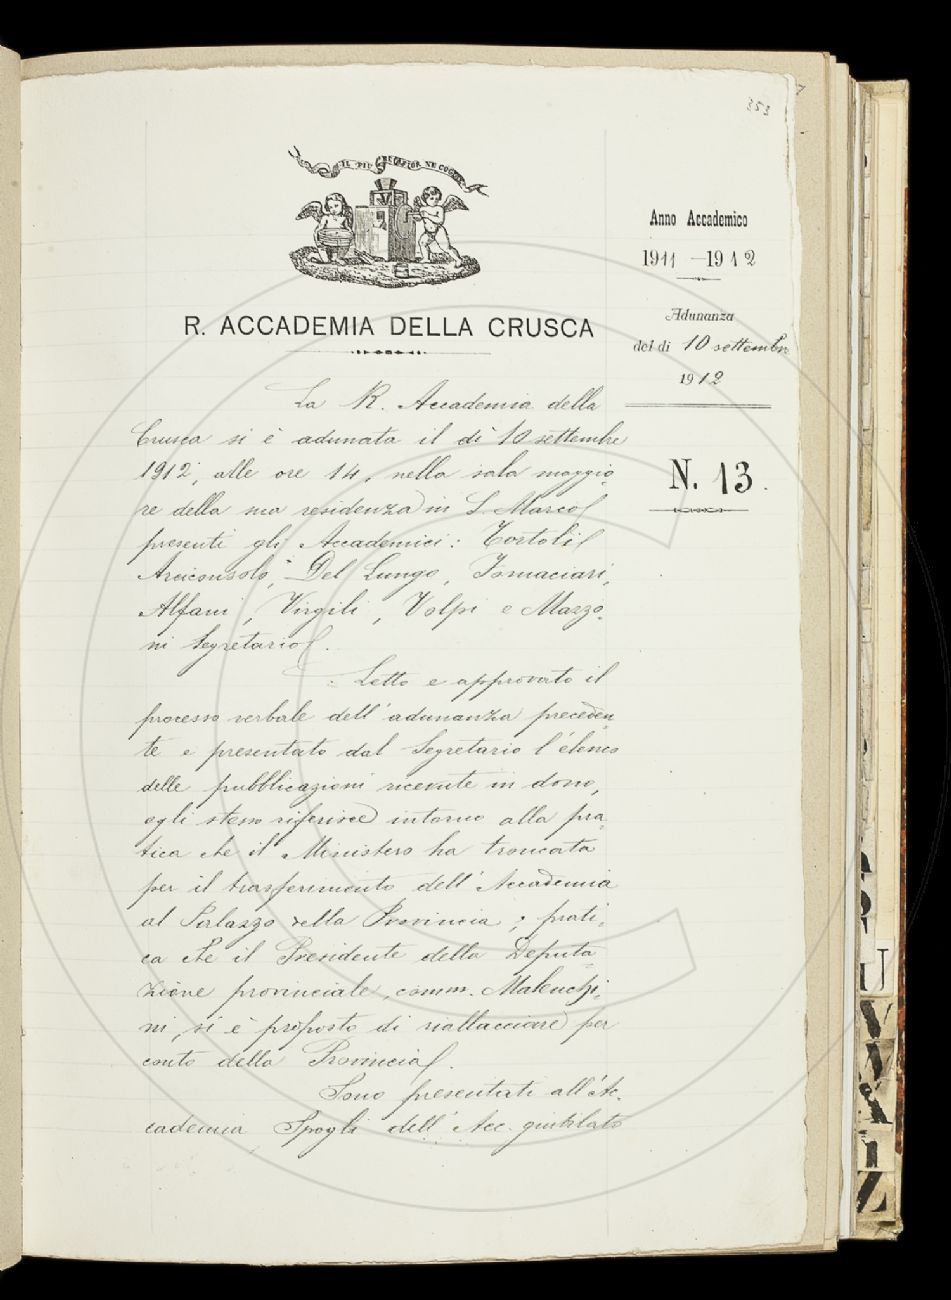 353
IL PIÙ BEL FIOR NE COGLIE
R. ACCADEMIA DELLA CRUSCA
Anno Accademico
1911 — 1912
Adunanza
del dì 10 settembre
1912
N. 13.
La R. Accademia della
Crusca si è adunata il dì 10 settembre
1912, alle ore 14, nella sala maggio-
re della sua residenza in S. Marco
presenti gli Accademici: Tortoli
Arciconsolo, Del Lungo, Fornaciari,
Alfani, Virgili, Volpi e Mazzo-
ni Segretario.
Letto e approvato il
processo verbale dell'adunanza preceden
te e presentato dal Segretario l'elenco
delle pubblicazioni ricevute in dono,
egli stesso riferisce intorno alla pra-
tica che il Ministero ha troncata
per il trasferimento dell'Accademia
al Palazzo della Provincia; prati-
ca che il Presidente della Deputa-
zione provinciale, comm. Malenchi-
ni, si è proposto di riallacciare per
conto della Provincia.
Sono presentati all'Ac-
cademia Spogli dell'Acc. giubilato
U
V
X
Z